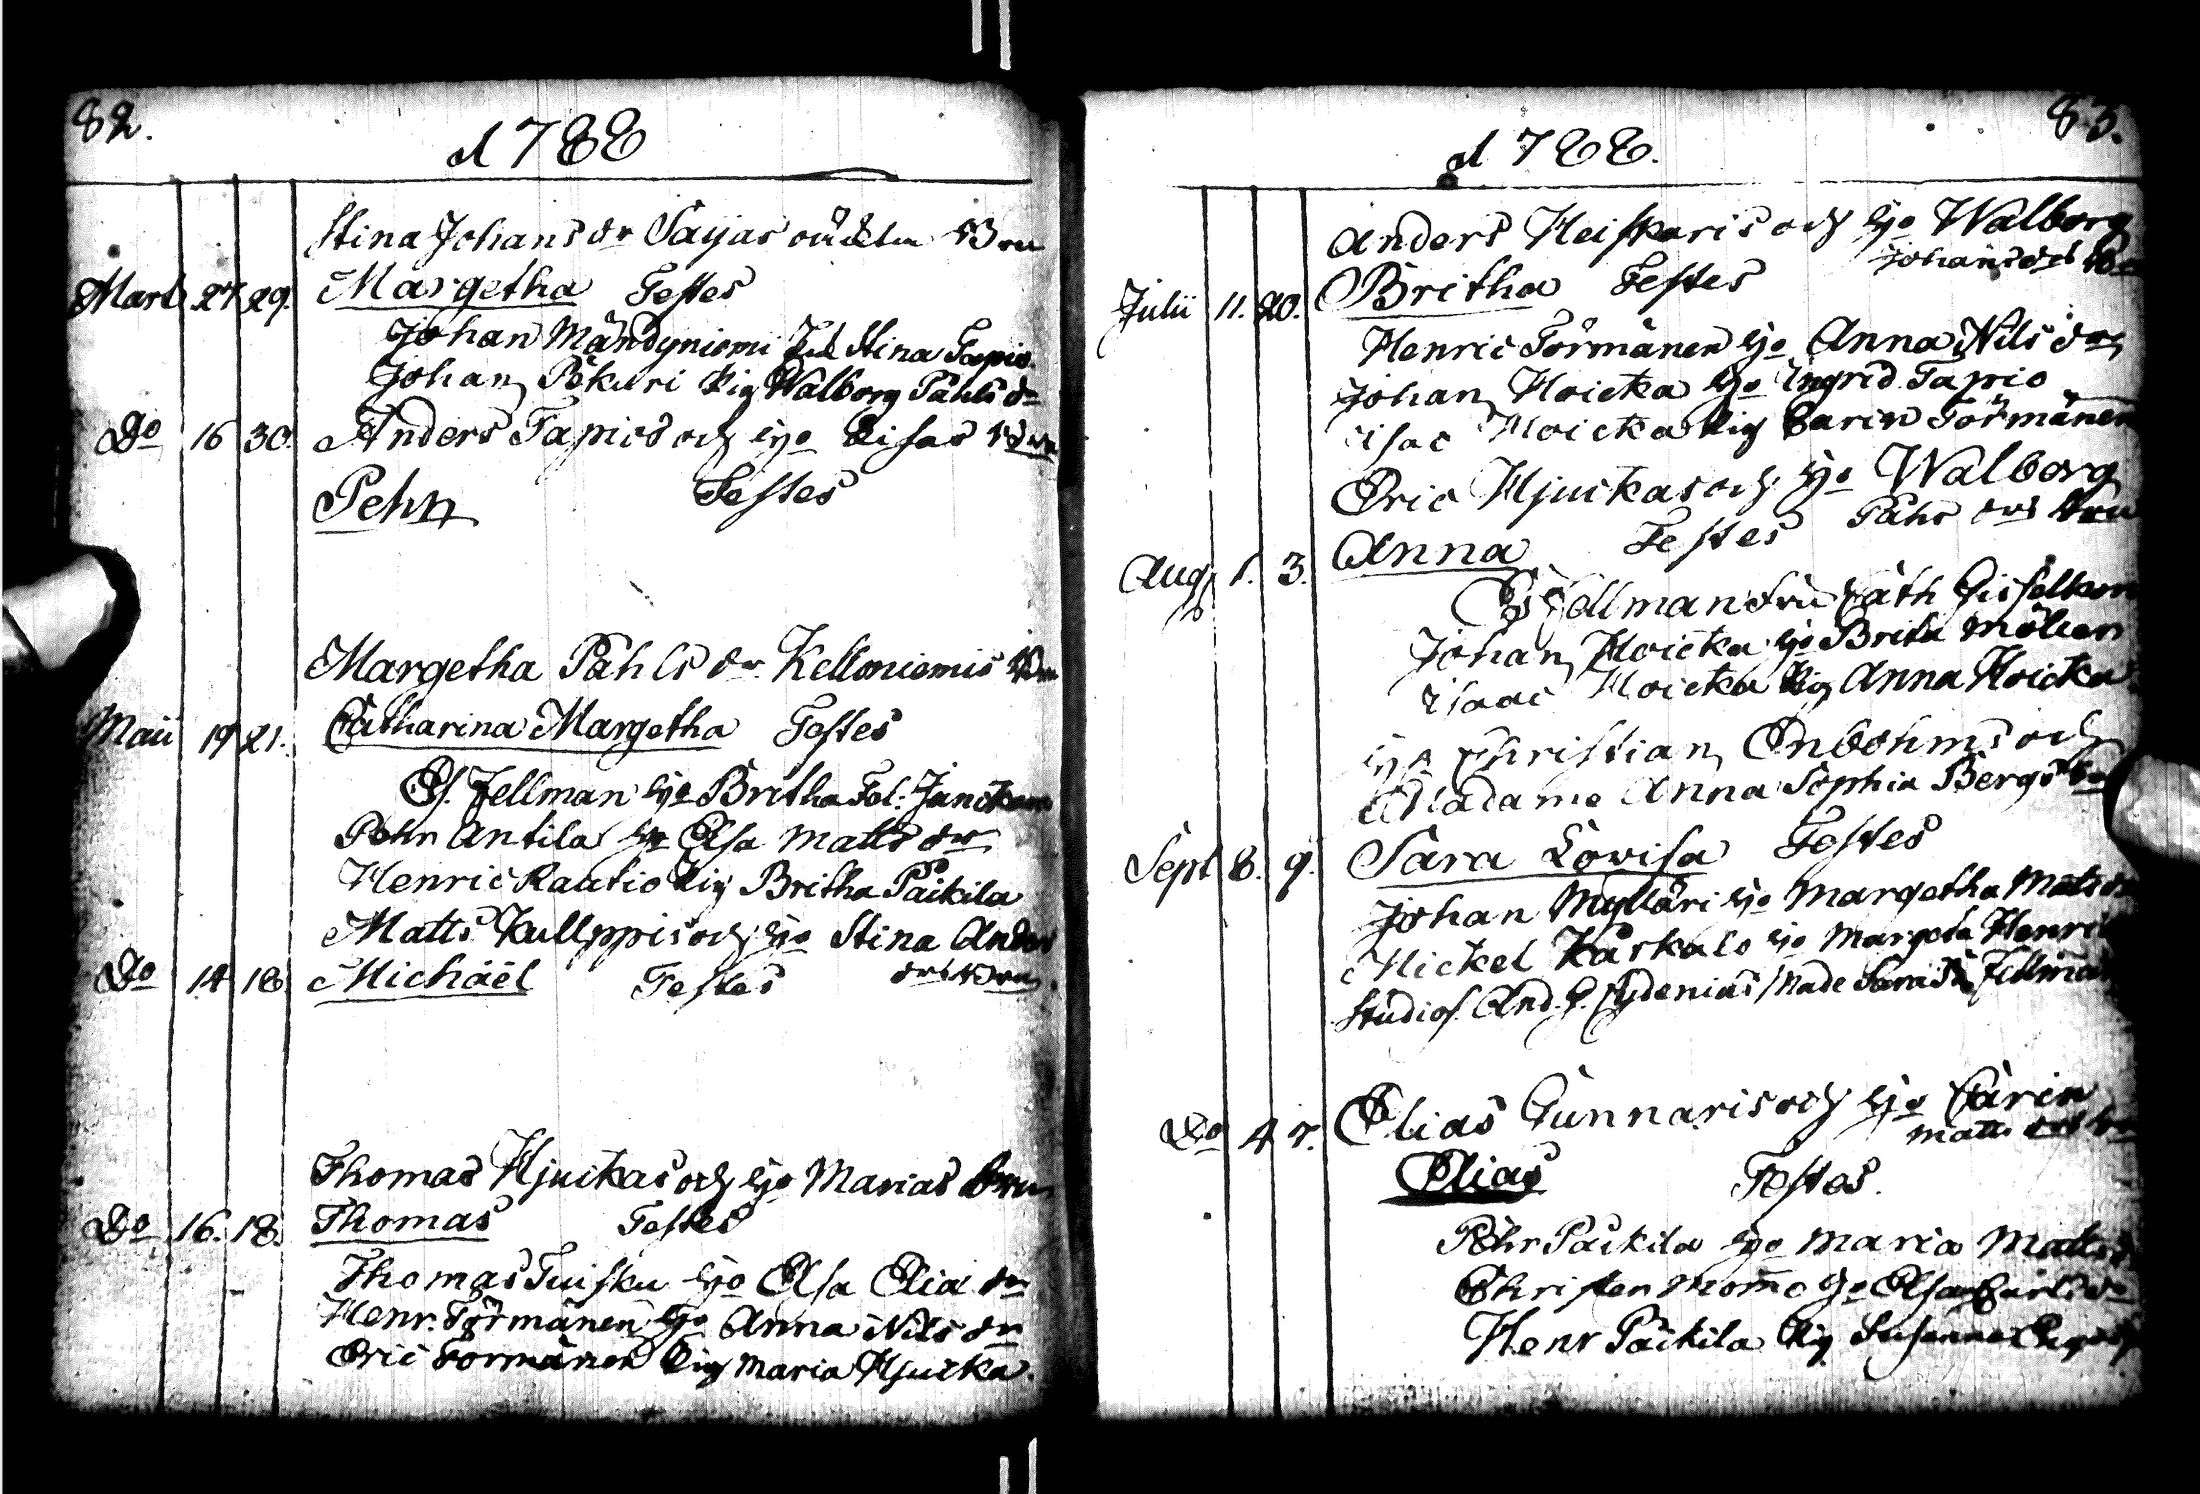 82.
1788
Stina Johans dr Sayas oächta Barn
Mart 27 29. Margetha Testes
Johan Mändyniemi Stina Tapio.
Johan Pekuri Pig Walborg Påhls dr
Do 16 30. Anders Tapios och hjo Lisas Barn
Pehr Testes
Margetha Påhls dr Kelloniemis Barn
Maii 19 21. Catharina Margetha Testes
Es. Fellman hjo Britha Jancken
Pehr Antila hjo Elsa Matts dr
Henric Raatio Pig Britha Paikila
Matts Kullppis och hjo Stina Anders
Do 14 18 Michaël Testes drs Barn
Thomas Hjuckas och hjo Marias barn
Do 16. 18. Thomas Testes
Thomas Tuisku hjo Elsa Elia dr
Henr. Törmänen hjo Anna Nils dr
Eric Törmänen Pig Maria Hjucka.
83.
1788.
Anders Heiskaris och hjo Walborg
Johans drs
Julii 11. 20. Britha Testes
Henric Törmänen hjo Anna Nils dr
Johan Hoicka hjo Ingrid Tapio
Isac Hoicka Pig Carin Törmänen
Eric Hjuckas och hjo Walborg
Påhs drs barn
Aug 1. 3. Anna Testes
Es Fellman fru Cath Gisselkors
Johan Hoicka hjo Brita Möller
Isaac Hoicka Pig Anna Hoicka
Christian Enbohms och
Madame Anna Sophia Bergs
Sept 8. 9. Sara Lovisa Testes
Johan Mylläri hjo Margetha Matts dr
Mickel Karkalo hjo Margeta Henric
Studios. And. G. Cydenius Made Sara Fellman
Do 4 7. Elias Gunnaris och hjo Carin
Matts drs
Elias Testes.
Pehr Paikila hjo Maria Matts
Christer Mommo hjo Elsa Carls dr
Henr Paikila Pig Susanna